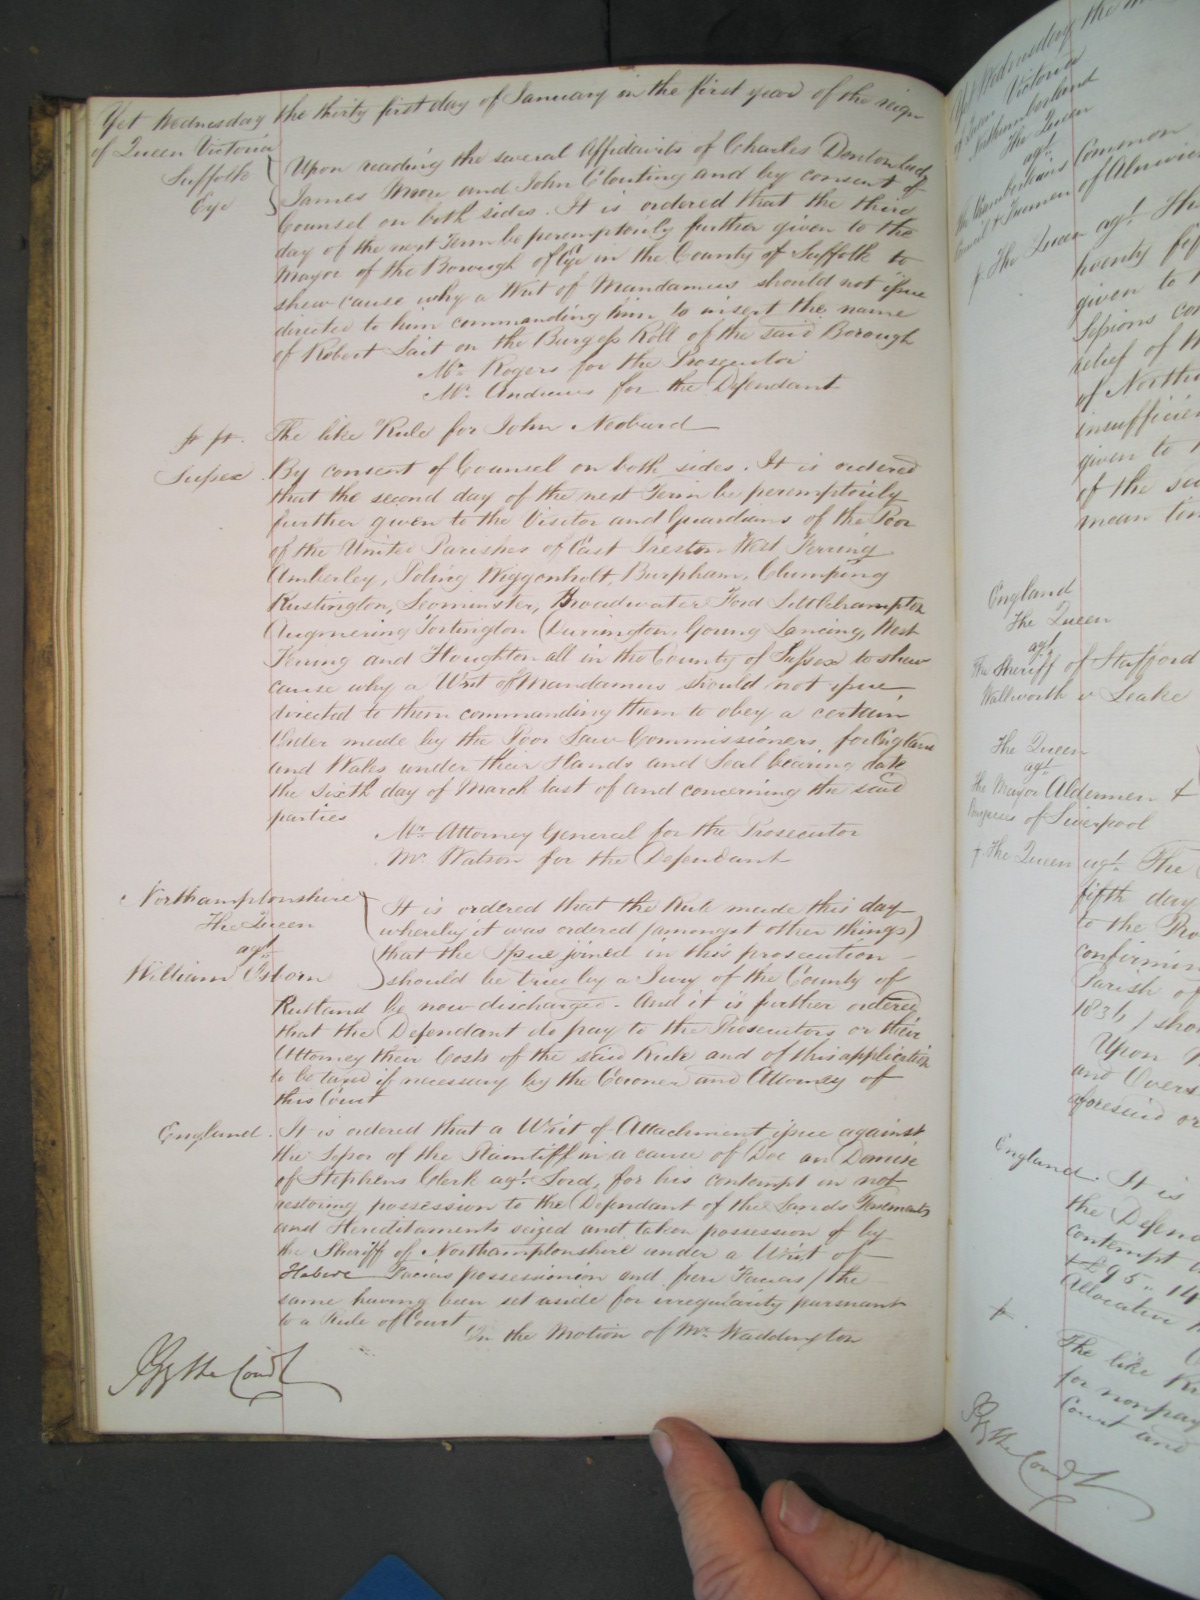 Yet Wednesday the thirty first day of January in the first year of the reign
of Queen Victoria
Suffolk
Eye
Upon reading the several Affidavits of Charles Denton
James Moore and John Clouting and by consent of
Counsel on both sides. It is ordered that the third
day of the next Term be peremptorily further given to the
Mayor of the Borough of Eye in the County of Suffolk to
shew cause why a Writ of Mandamus should not issue
directed to him commanding him to insert the name
of Robert Sait on the Burgess Roll of the said Borough
Mr. Rogers for the Prosecutor
Mr. Andrews for the Defendant
The like Rule for John Neobard
Sussex
By consent of Counsel on both sides. It is ordered
that the second day of the next Term be peremptorily
further given to the Visitor and Guardians of the Poor
of the United Parishes of East Preston West Ferring
Amberley, Poling Wiggonholt, Burpham, Clumping
Rustington, Leominster, Broadwater Ford Littlehampton
Angmering Tortington Durrington, Goring Lancing, West
and Houghton all in the County of Sussex to shew
cause why a Writ of Mandamus should not issue
directed to them commanding them to obey a certain
Order made by the Poor Law Commissioners for England
and Wales under their Hands and Seal bearing date
the sixth day of March last of and concerning the said
parties
Mr. Attorney General for the Prosecutor
Mr. Watson for the Defendant
Northamptonshire
The Queen
agt.
William Osborn
It is ordered that the Rule made this day
whereby it was ordered (amongst other things)
that the Issue joined in this prosecution
should be tried by a Jury of the County of
Rutland be now discharged. And it is further ordered
that the Defendant do pay to the Prosecutors or their
Attorney their Costs of the said Rule and of this application
to be taxed if necessary by the Coroner and Attorney of
this Court
England.
It is ordered that a Writ of Attachment issue against
the Lessor of the Plaintiff in a cause of Doe on Demise
of Stephens Clerk agt. Lord, for his contempt in not
restoring possession to the Defendant of the Lands Tenements
and Hereditaments seized and taken possession of by
the Sheriff of Northamptonshire under a Writ of
Habere Facias possessionion and fieri Facias / the
same having been set aside for irregularity pursuant
to a Rule of Court
On the Motion of Mr. Waddington
By the Court
Yet Wednesday the
Victoria
Northumberland
The Queen
agt.
The Chamberlains Common
Council & Freemen of Alnwick
The Queen agt. The
twenty fif
given to t
Sessions co
relief of th
of North
insufficien
given to t
of the sa
mean tim
England
The Queen
agt.
The Sheriff of Stafford
Wallworth v Leake
The Queen
agt.
The Mayor Aldermen &
Burgesses of Liverpool
The Queen agt. The
fifth day
to the Pro
confirmin
Parish of
1836 / sho
Upon
and Overs
aforesaid or
England. It is
the Defend
contempt
£95 .. 14
Allocatur
The like Ru
for nonpay
Court and
By the Court